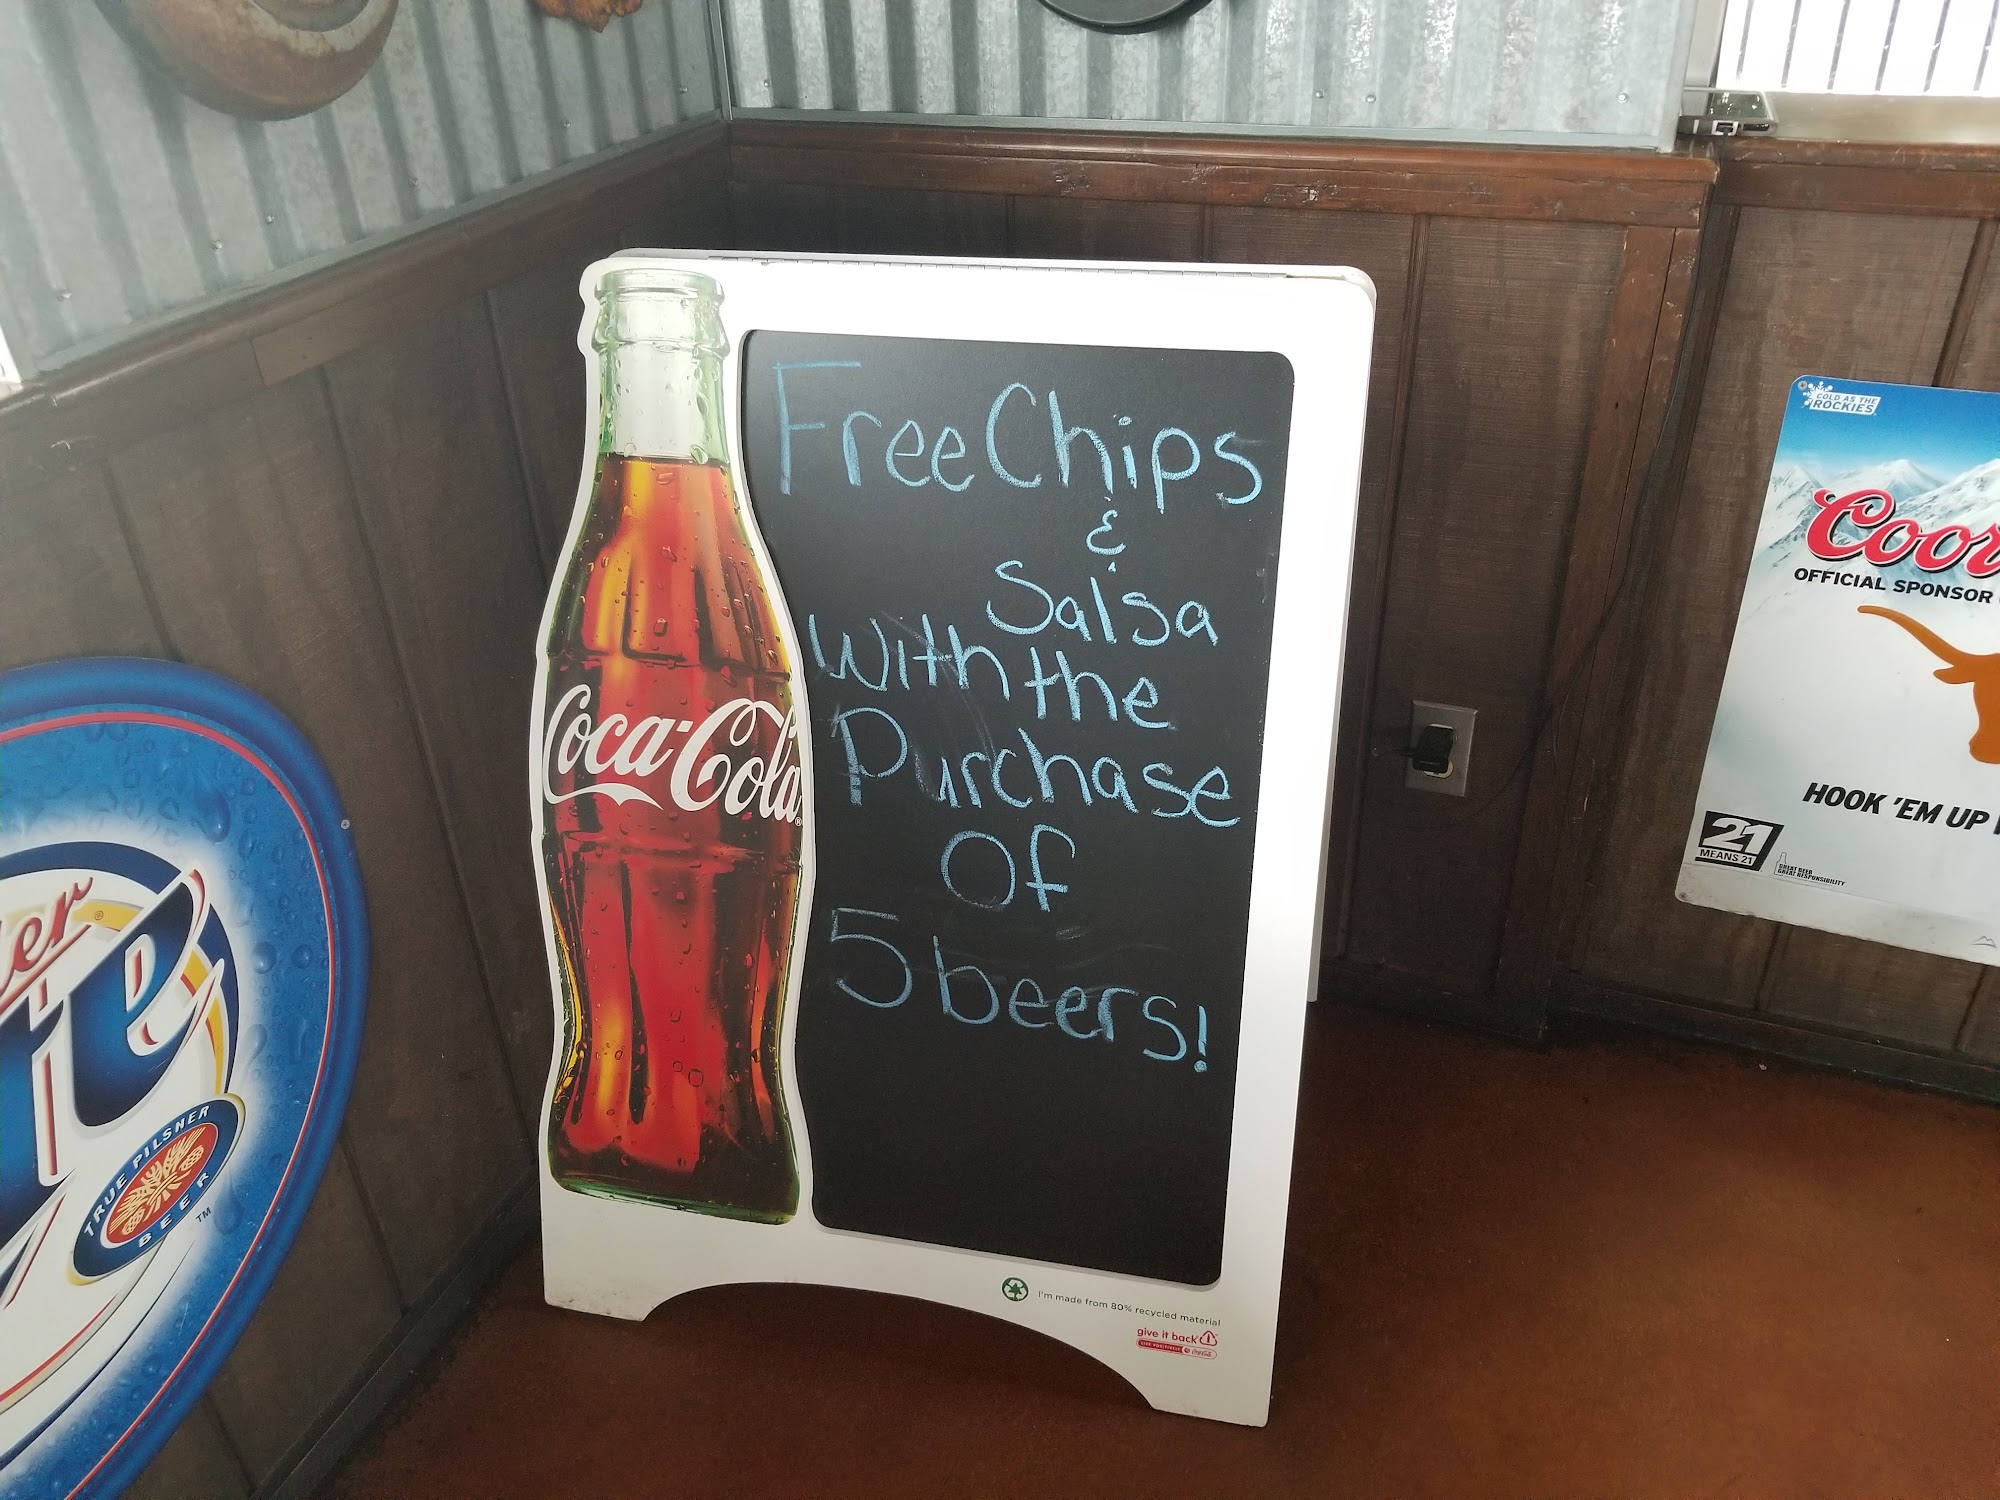 Free Chips
&
Salsa
With the
Purchase
Of
5 beers!
Coca-Cola
I'm made from 80% recycled material
give it back
LIVE POSITIVELY
Coca-Cola
TRUE PILSNER
BEER
TM
COLD AS THE
ROCKIES
OFFICIAL SPONSOR
HOOK 'EM UP
21
MEANS 21
GREAT BEER
GREAT RESPONSIBILITY